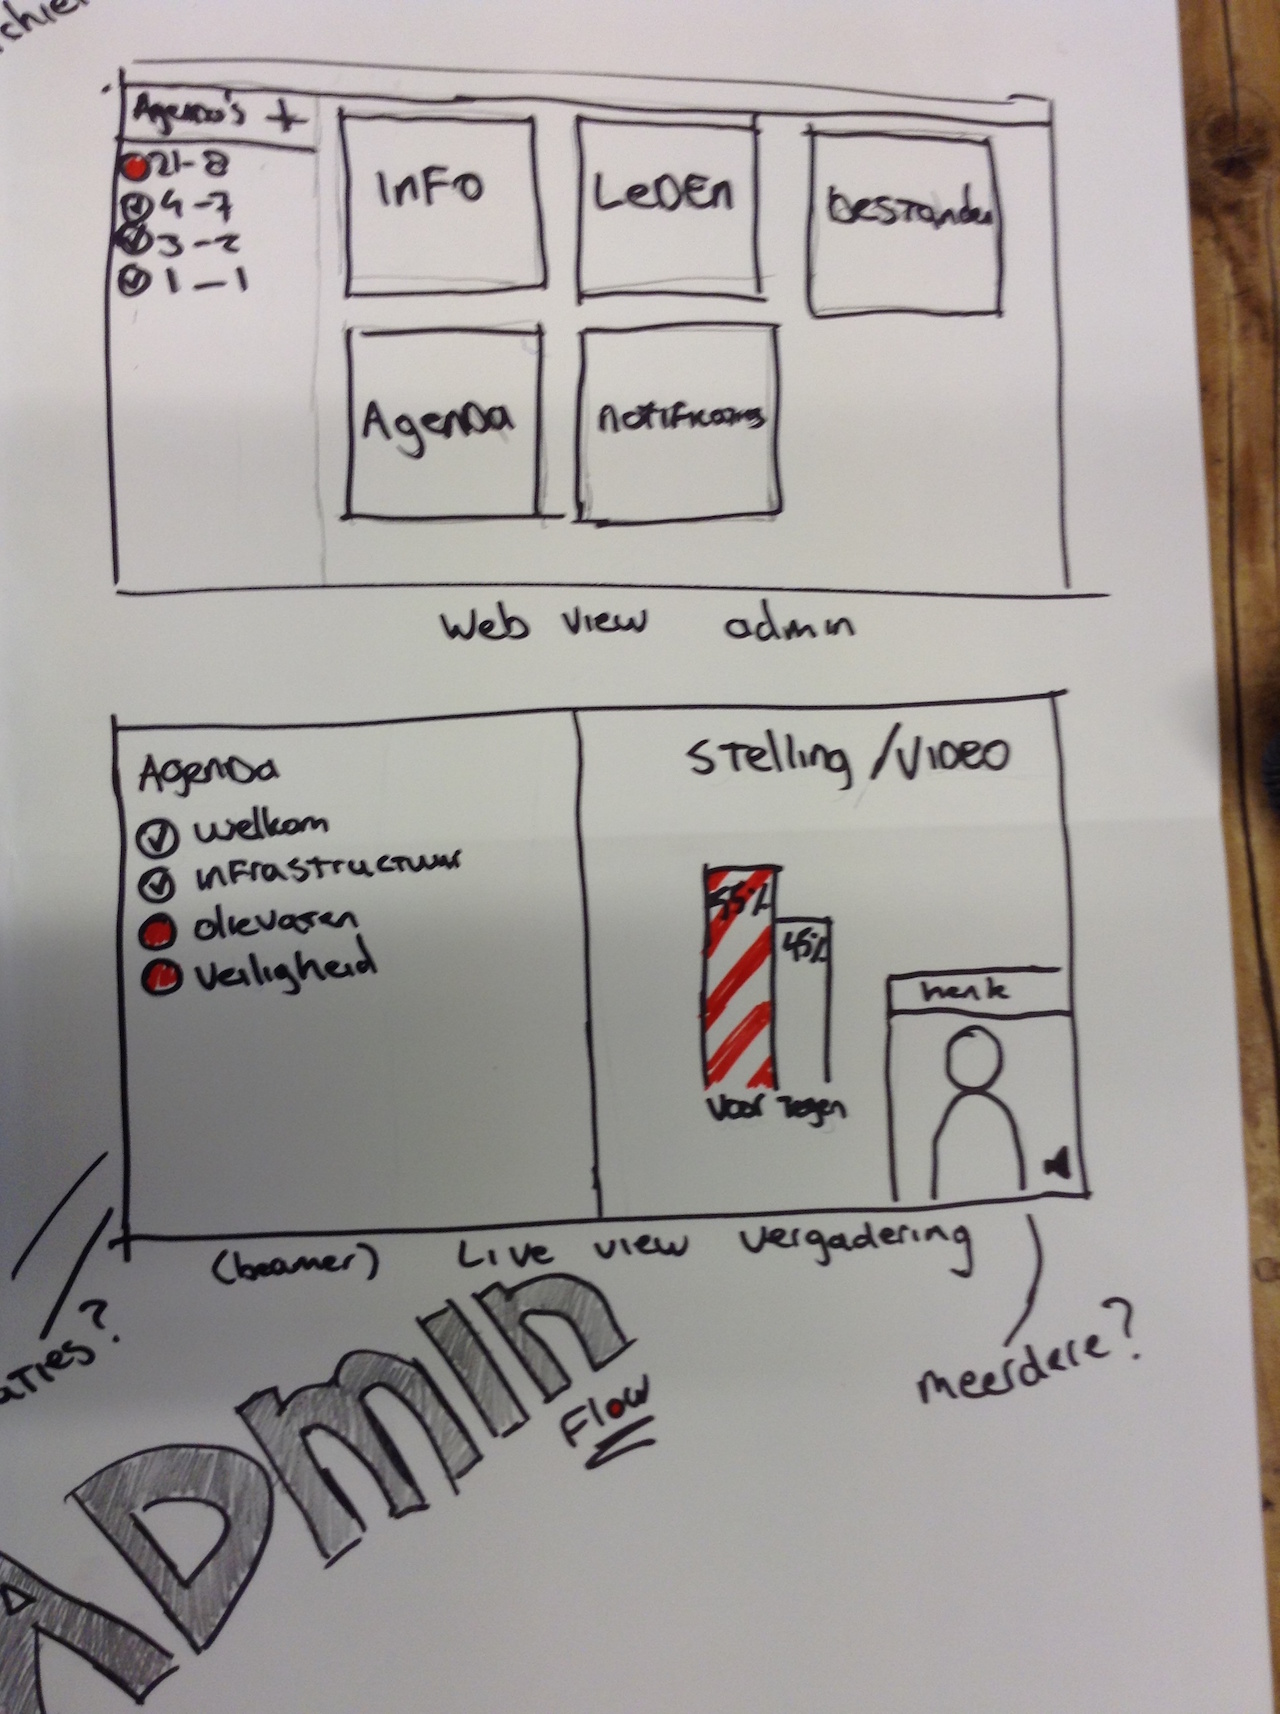 Agenda's +
21-8
4-7
3-2
1-1
INFO
LEDEN
bestanden
Agenda
notificaties
Web view admin
Agenda
Welkom
infrastructuur
olievaten
Veiligheid
Stelling/VIDEO
55%
45%
Voor Tegen
henk
(beamer) Live view vergadering
meerdere?
ADMIN
Flow